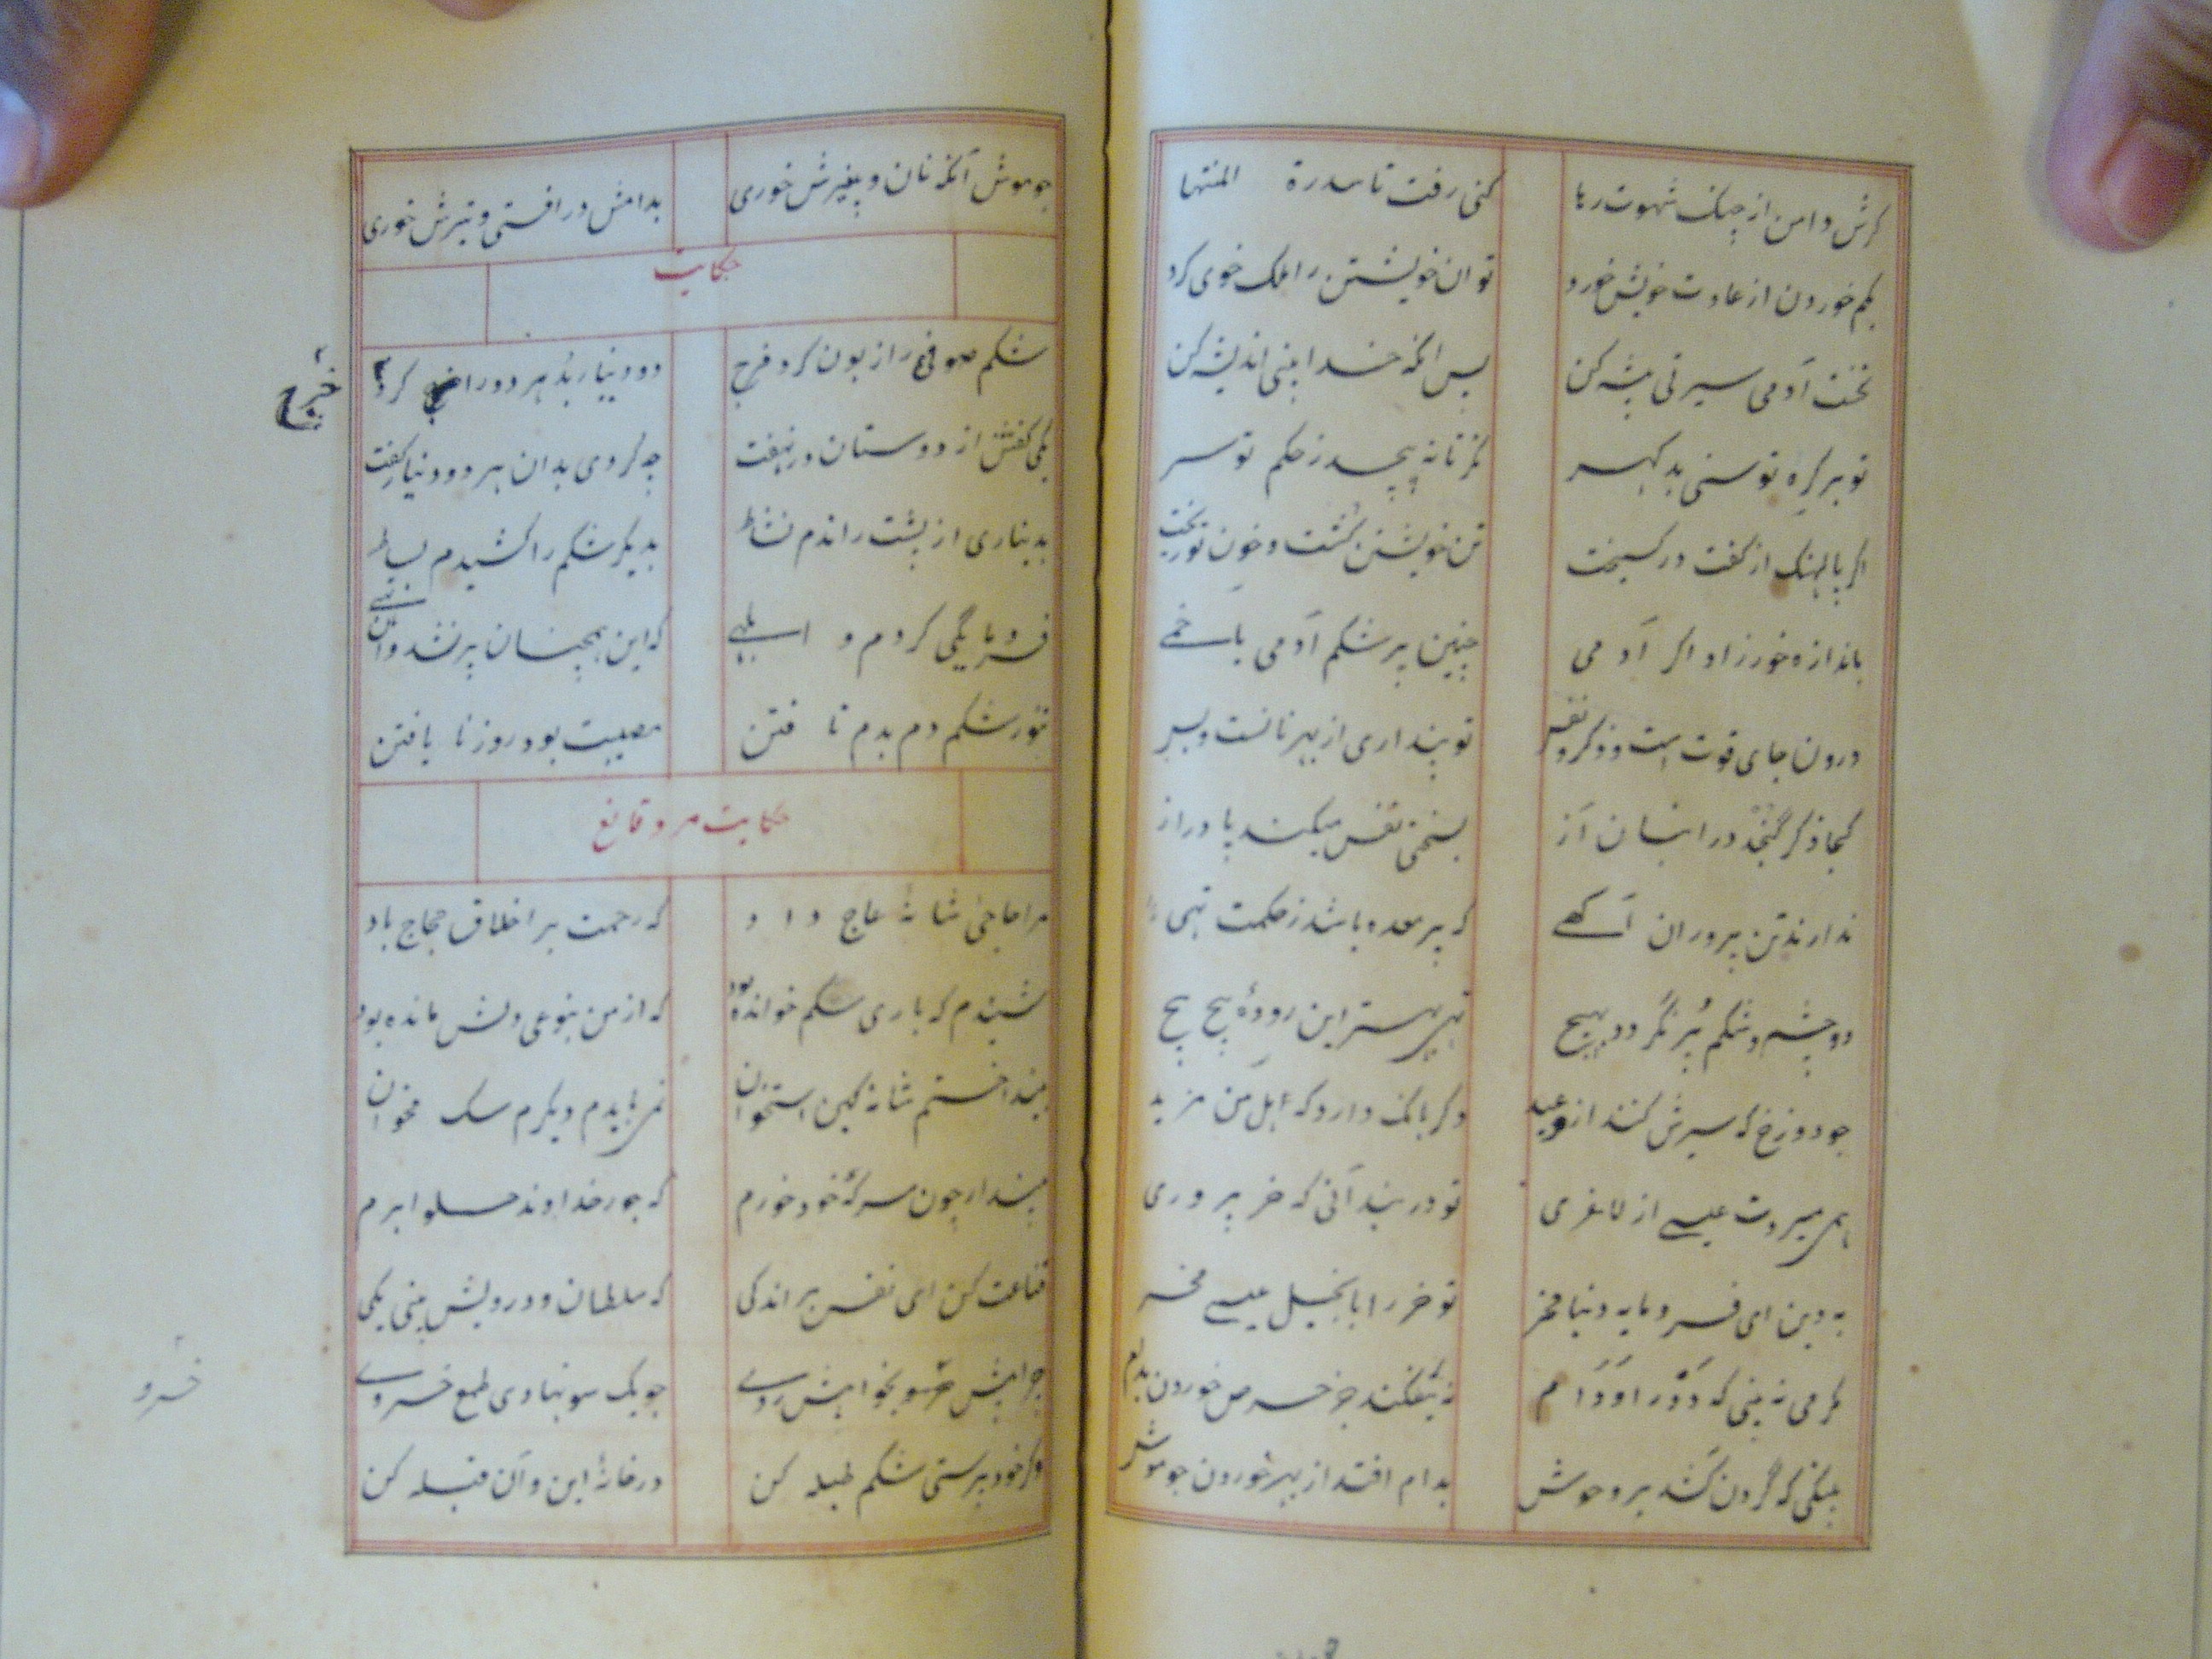 كرش دامن از چنك شهوت رها كنى رفت تا سدرة المنتها
بكم خوردن از عادت خويش خورد توان خويشتن را ملك خوى كرد
نخست آدمى سيرتى پيشه كن پس آنكه ملك خدا بينى انديشه كن
تو بر كره توسنى بد كهر نكر تا نه پيچد ز حكم تو سر
اكر پالهنك از كفت در كسيخت تن خويشتن كشت و خون تو ريخت
باندازه خور زاد اكر آدمى چنين پر شكم آدمى يا خمى
درون جاى قوت است و ذكر و نفس تو پندارى از بهر نانست و بس
كجا ذكر گنجد در انبان آز بسختى نفس ميكند پا دراز
ندارند تن پروران آكهى كه پر معده باشد ز حكمت تهى
دو چشم و شكم پر نكردد بهيچ تهى بهتر اين رودهٔ پيچ پيچ
چو دوزخ كه سيرش كنند از وعيد دكر بانك دارد كه هل من مزيد
همى ميردت عيسى از لاغرى تو در بند آنى كه خر پرورى
به دين اى فرومايه دنيا مخر تو خر را بانجيل عيسى مخر
مكر مى نه بينى كه دد را و دام نه يفكند جز حرص خوردن بدام
پلنگى كه گردن كشد بر وحوش بدام افتد از بهر خوردن چو موش
چو موش آنكه نان و پنيرش خورى بدامش در افتى و تيرش خورى
حكايت
شكم صوفئ را زبون كرد فرج دو دينار بد هر دو را كرد
خرج
يكى كفتش از دوستان در نهفت چه كردى بدان هر دو دينار كفت
بدينارى از پشت راندم نشاط بديكر شكم را كشيدم بساط
فرومايگى كردم و ابلهى كه اين همچنان پر نشد وان تهى
تنور شكم دم بدم تافتن مصيبت بود روز نا يافتن
حكايت مرد قانع
مرا حاجئ شانهٔ عاج داد كه رحمت بر اخلاق حجاج باد
شنيدم كه بارى سكم خوانده بود كه از من بنوعى دلش مانده بود
بينداختم شانه كين استخوان نمى بايدم ديكرم سك مخوان
مپندار چون سركهٔ خود خورم كه جور خداوند حلوا برم
قناعت كن اى نفس بر اندكى كه سلطان و درويش بينى يكى
چرا پيش خسرو بخواهش روى چو يك سو نهادى طمع خسروى
خسرو
وكر خود پرستى شكم طبله كن در خانهٔ اين و آن قبله كن